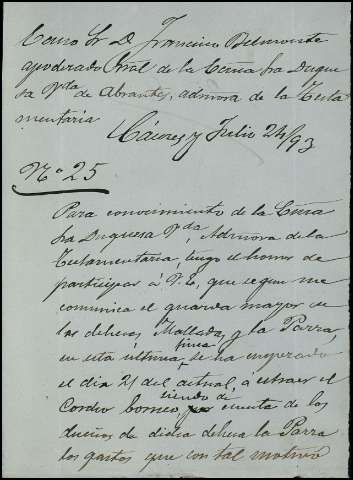 Excmo Sr D. Francisco Belmonte
apoderado Gral de la Excma Sra Duque
sa Vda de Abrantes, admora de la Testa
mentaria
Cáceres y Julio 24/93
No 25
Para conocimiento de la Excma
Sra Duquesa Vda, Admora de la
Testamentaria, tengo el honor de
participar á V. E, que segun me
comunica el guarda mayor de
las dehesas Mallada, y la Parra,
finca
en esta última, se ha empezado
el dia 21 del actual, a extraer el
siendo de
Corcho borneo, cuenta de los
dueños de dicha dehesa la Parra
los gastos que con tal motivo